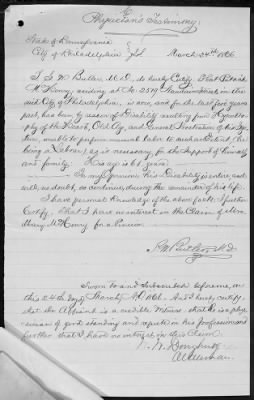 Physician's Testimony.
State of Pennsylvania
City of Philadelphia } SS March 24th 1866
I, S. W. Butler M.D. do hereby Certify that
McHenry residing at No. 2519 Street in the
said City of Philadelphia, is now, and for the last five years
past, has been by reason of Disability resulting from
of the Heart, Old Age, and General Prostration of his Sys-
tem, unable to perform manual labor to such an Extent (he
being a Laborer) as is necessary for the Support of himself
and family. His age is 61 years.
In my opinion his Disability is entire, and
will, no doubt, so continue, during the remainder of his life.
I have personal Knowledge of the above facts. I further
Certify, that I have no interest in the Claim of Mrs.
Mary McHenry for a Pension
Butler M.D.
Sworn to and Subscribed before me, on
this 24th day of March A.D. 1866. And I hereby certify
that the Affiant is a credible Witness, that he is a phy-
sician of good standing and repute in his Profession and
further that I have no interest in this Claim.
Dougherty
Alderman